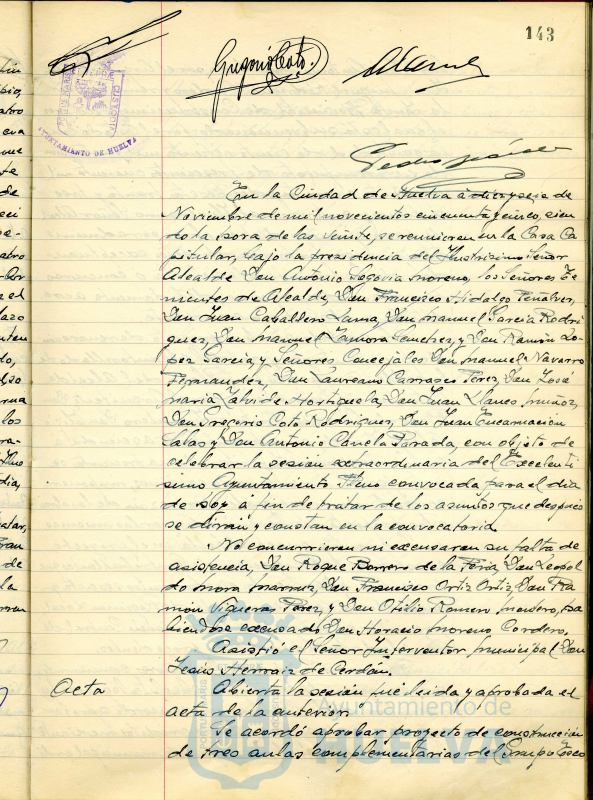 143
Gregorio Coto.
AYUNTAMIENTO DE HUELVA
En la Ciudad de Huelva a diez y seis de
Noviembre de mil novecientos cincuenta y cinco, sien
do la hora de las veinte, se reunieron en la Casa Ca
pitular, bajo la presidencia del Ilustrísimo Señor
Alcalde Don Antonio Segovia Moreno, los Señores Te
nientes de Alcalde, Don Francisco Hidalgo Peñalver,
Don Juan Caballero Luna, Don Manuel García Rodrí
guez, Don Manuel Zamora Sanchez, y Don Ramón Ló
pez García y Señores Concejales Don Manuel Navarro
Fernandez, Don Laureano Carrasco Perez, Don José
María Zalvide Hostiguela, Don Juan Llanes Muñoz,
Don Gregorio Coto Rodríguez, Don Juan Encarnación
Salas y Don Antonio Canela Parada, con objeto de
celebrar la sesión extraordinaria del Excelentí
simo Ayuntamiento Pleno convocada para el día
de hoy á fin de tratar de los asuntos que después
se dirán y constan en la convocatoria.
No concurrieron ni excusaron su falta de
asistencia, Don Roque Barrero de la Feria, Don Leopol
do Mora Don Francisco Ortiz Ortiz, Don Ra
món Vigueras Perez, y Don Otilio Romero Mordero, ha
biendose excusado Don Horacio Moreno Cordero.
Asistió el Señor Interventor municipal Don
Jesús Herraiz de Cerdán.
Acta
Abierta la sesión fué leida y aprobada el
acta de la anterior.
Se acordó aprobar proyecto de construcción
de tres aulas complementarias del Grupo Esco
Ayuntamiento de
HUELVA